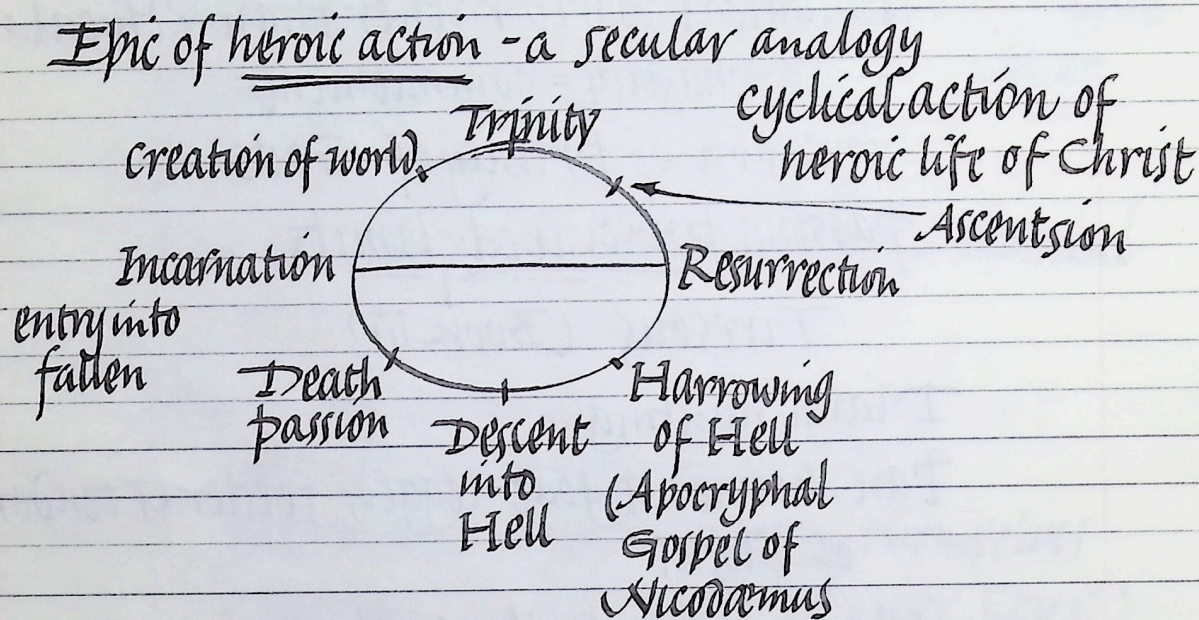 Epic of heroic action - a secular analogy
cyclical action of
heroic life of Christ
Trinity
Creation of world
Ascentsion
Incarnation
Resurrection
entry into
fallen
Death
passion
Descent
into
Hell
Harrowing
of Hell
(Apocryphal
Gospel of
Nicodæmus